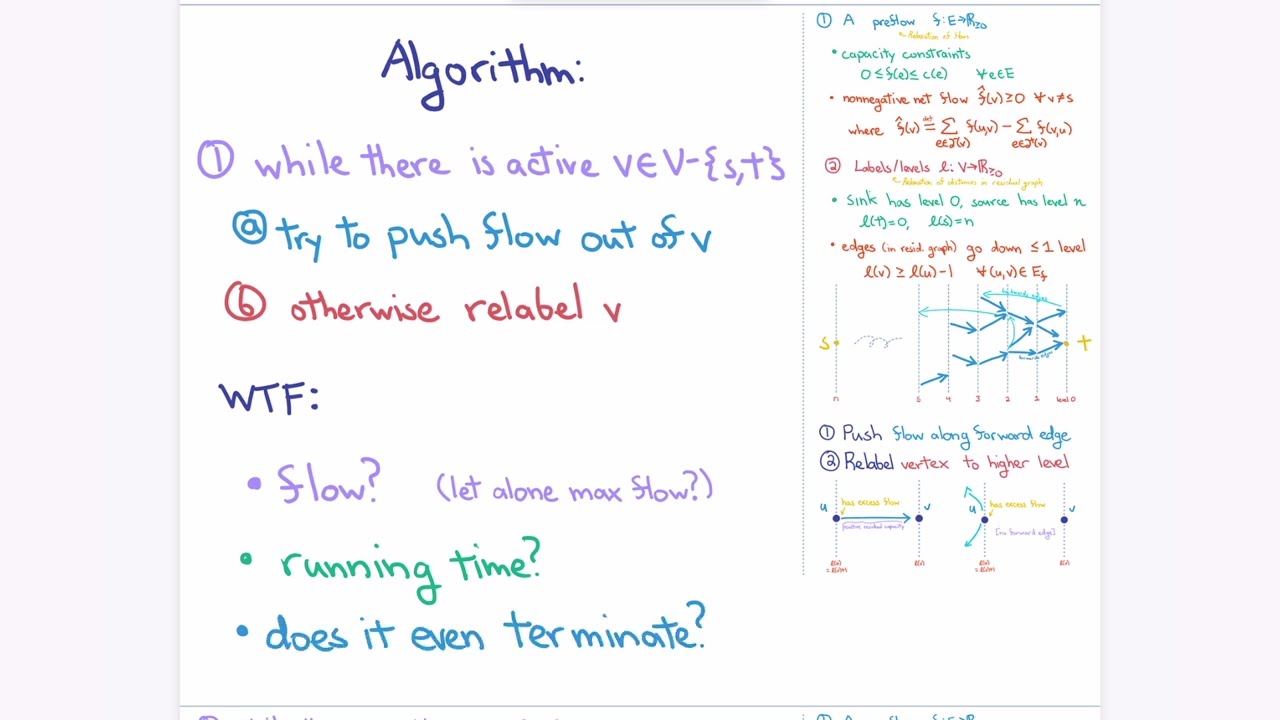 Algorithm:
① while there is active v∈V-{s,t}
ⓐ try to push flow out of v
ⓑ otherwise relabel v
WTF:
• flow? (let alone max flow?)
• running time?
• does it even terminate?
① A preflow f: E→ℝ≥0
↖ Relaxation of flows
• capacity constraints
0 ≤ f(e) ≤ c(e) ∀e∈E
• nonnegative net flow f̂(v) ≥ 0 ∀v≠s
where f̂(v) ≝ ∑ f(u,v) - ∑ f(v,u)
e∈∂⁻(v) e∈∂⁺(v)
② Labels/levels l: V→ℝ≥0
↖ Relaxation of distances in residual graph
• sink has level 0, source has level n
l(t)=0, l(s)=n
• edges (in resid. graph) go down ≤1 level
l(v) ≥ l(u)-1 ∀(u,v)∈E_f
backwards edges
s t
forwards edges
n 5 4 3 2 1 level 0
① Push flow along forward edge
② Relabel vertex to higher level
u has excess flow v
positive residual capacity
l(u) = l(v)+1 l(v)
u has excess flow v
[no forward edge]
l(u) = l(v)+1 l(v)